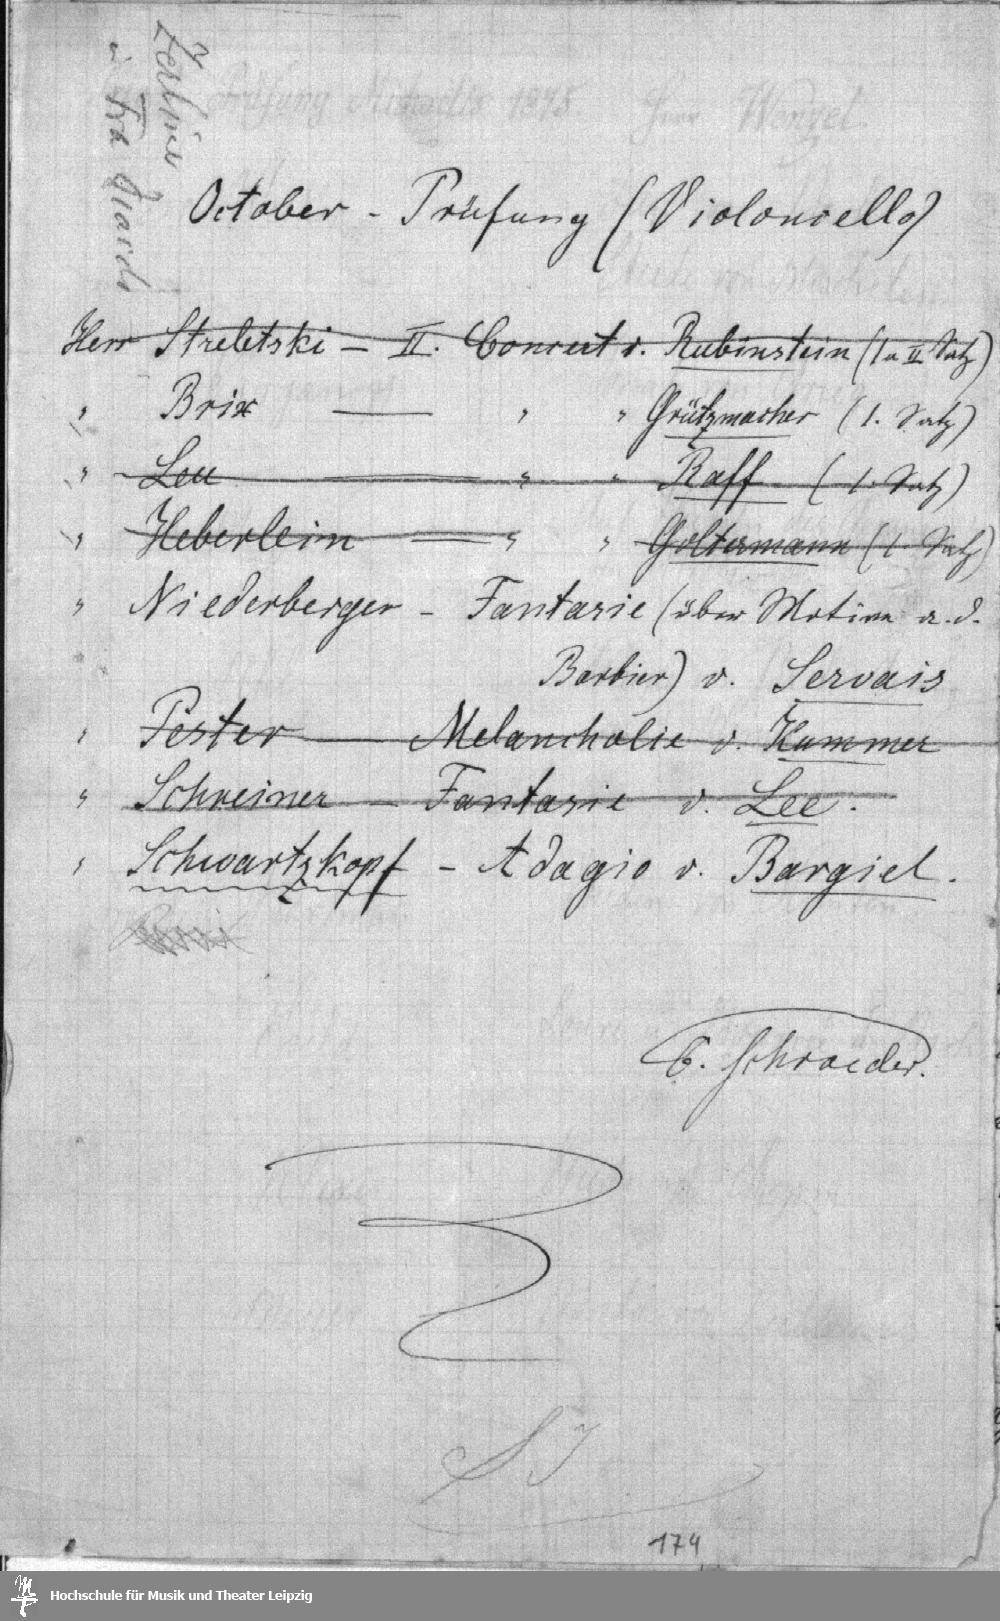 October - Prüfung (Violoncello)
Herr Streletski - II. Concert v. Rubinstein (1 u II Satz)
" Brix — " " Grützmacher (1. Satz)
" Leu — " " Raff (1. Satz)
" Heberlein — " " Goltermann (1. Satz)
" Niederberger - Fantasie (über Motive a. d.
Barbier) v. Servais
" Pester — Melancholie v. Kummer
" Schreiner - Fantasie v. Lee.
" Schwartzkopf - Adagio v. Bargiel.
C. Schroeder.
174
Hochschule für Musik und Theater Leipzig